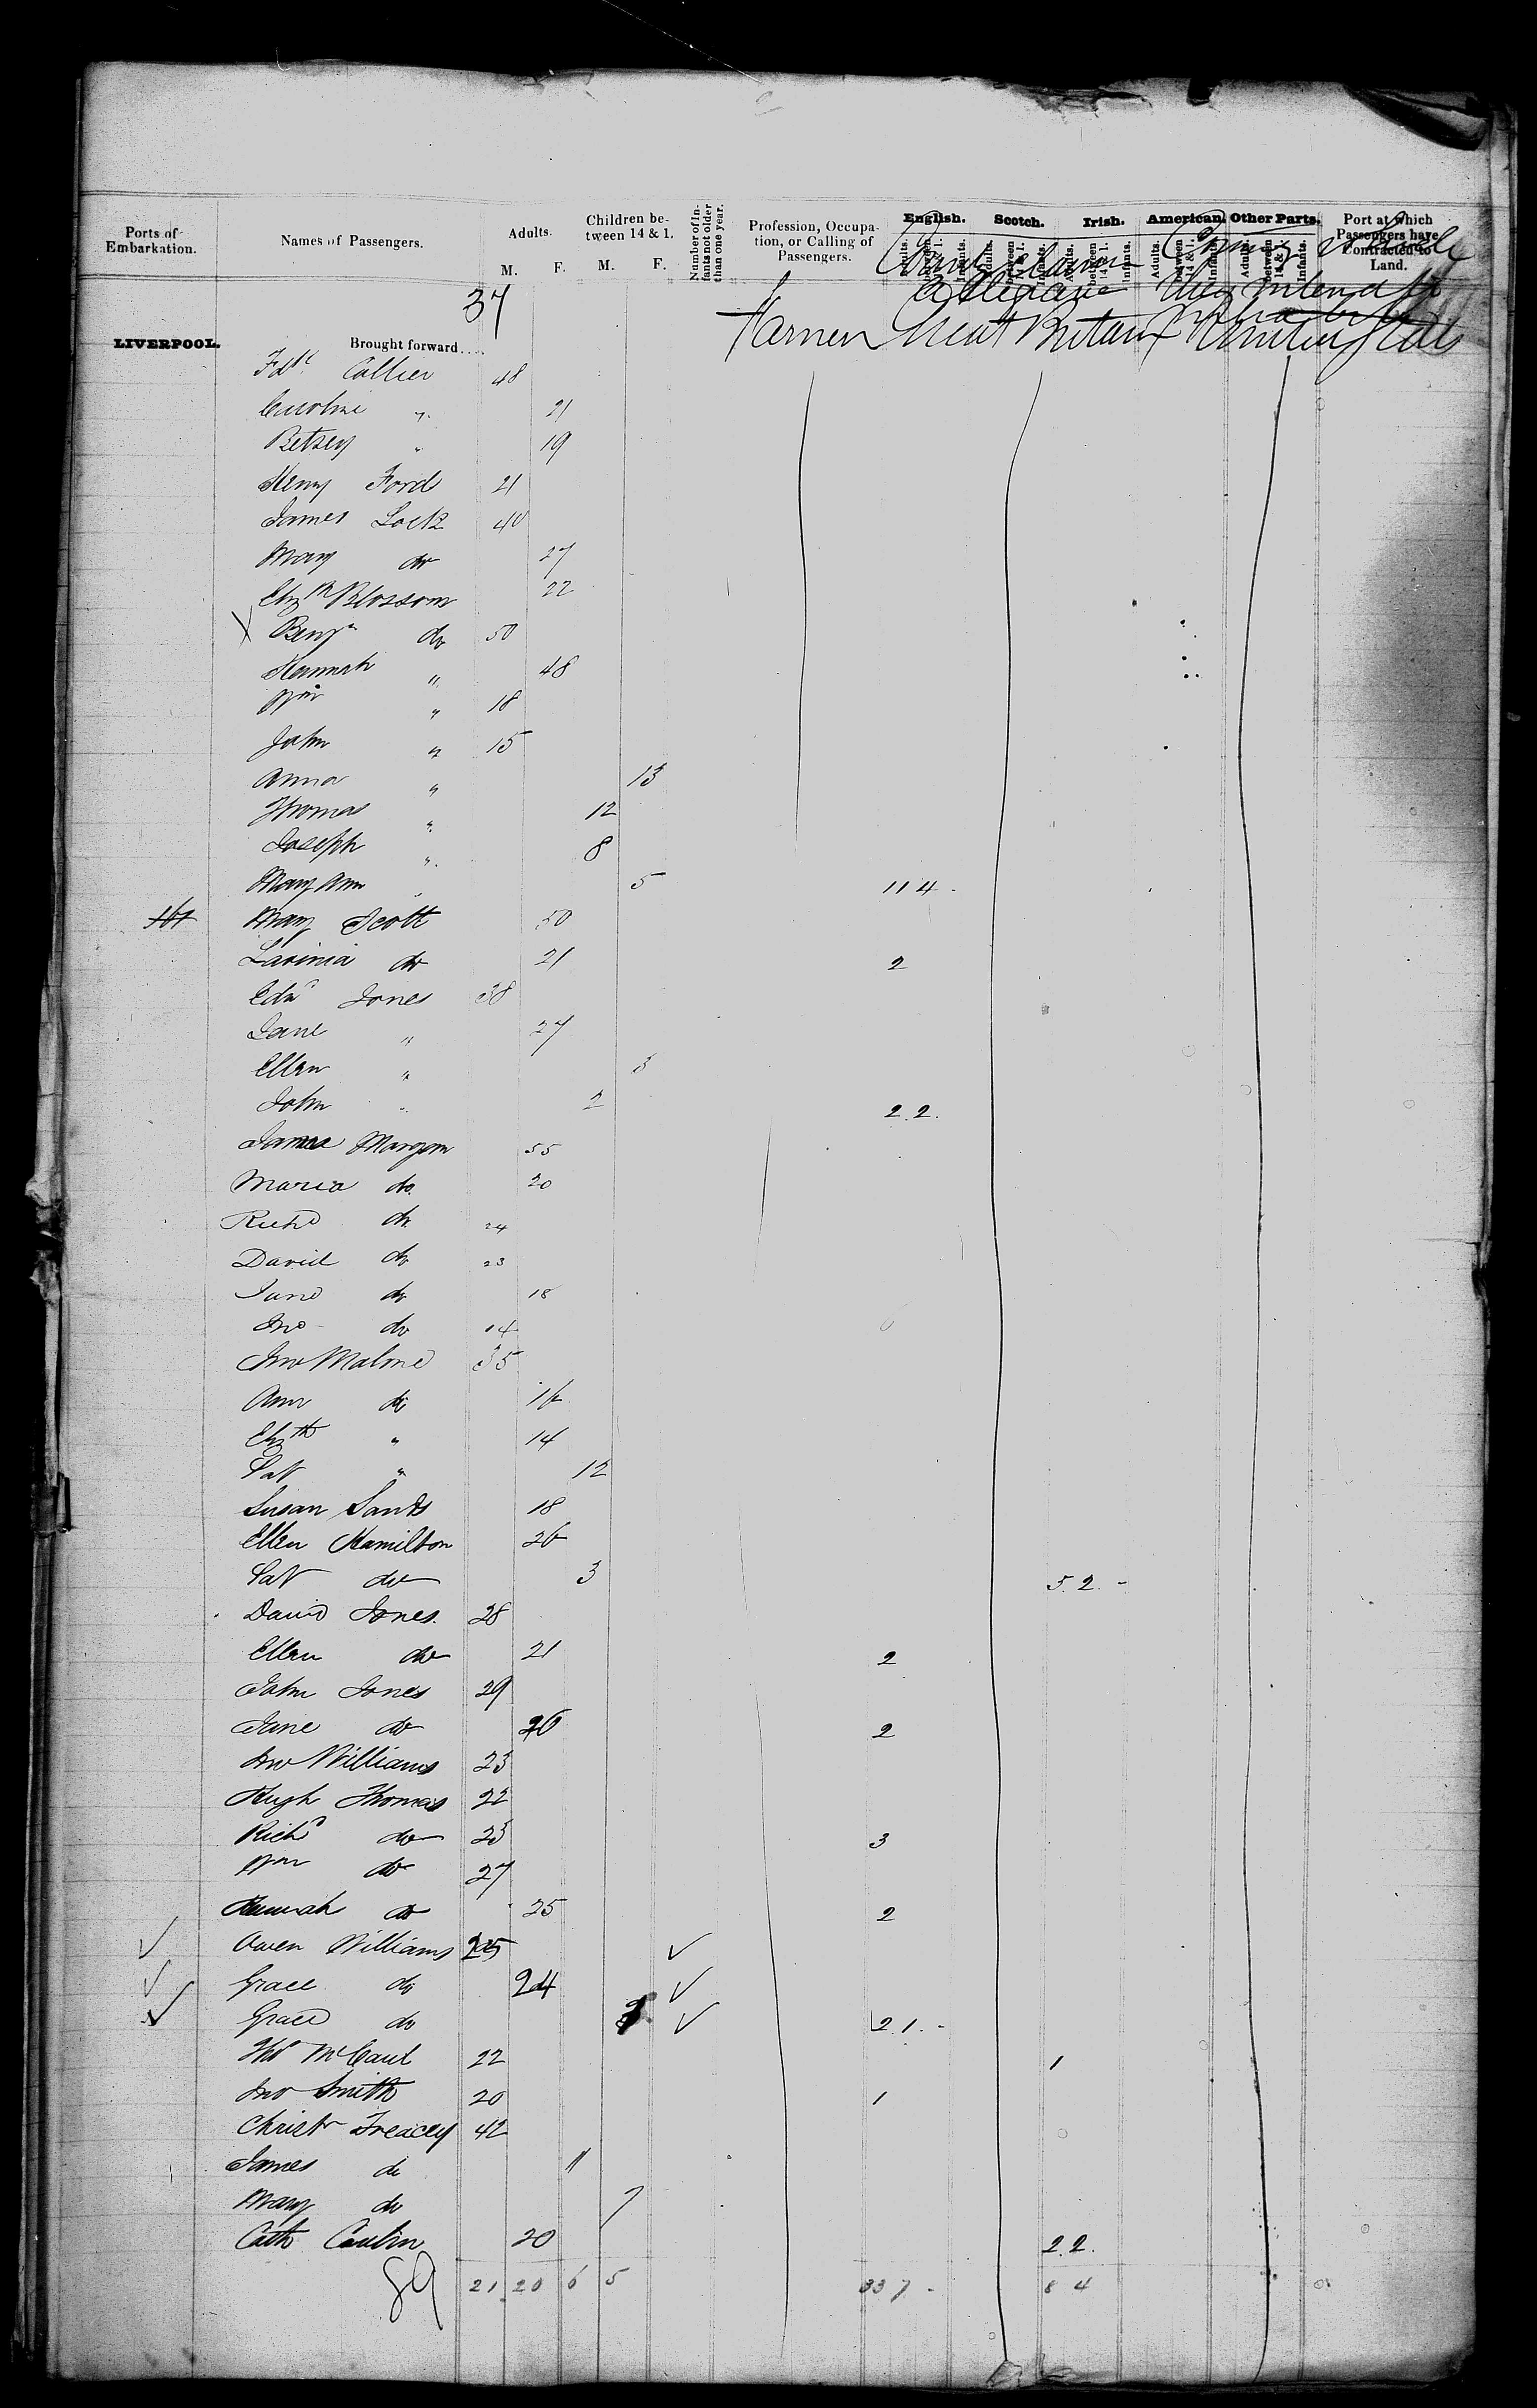 Ports of Embarkation. Names of Passengers. Adults. M. F. Children between 14 & 1. M. F. Number of Infants not older than one year. Profession, Occupation, or Calling of Passengers. English. Adults. between 14 & 1. Infants. Scotch. Adults. between 14 & 1. Infants. Irish. Adults. between 14 & 1. Infants. American. Adults. between 14 & 1. Infants. Other Parts. Adults. between 14 & 1. Infants. Port at which Passengers have Contracted to Land.
37
they intend to
LIVERPOOL. Brought forward....
Farmer Great Britain United States
Collier 48
Caroline " 21
Betsey " 19
Henry Ford 21
James Lock 40
Mary do 27
Elizth Blossom 22
Benjn do 50
Hannah " 48
Wm " 18
John " 15
Anna " 13
Thomas " 12
Joseph " 8
Mary Ann " 5 11 4 -
Mary Scott 50
Lavinia do 21 2
Edwd Jones 38
Jane " 27
Ellen " 3
John " 2 2 2.
Margam 55
Maria do. 20
Richd do 24
David do 23
Jane do 18
Jno do 14
Jno Malone 35
Ann do 16
Elizth " 14
Pat " 12
Susan Sands 18
Ellen Hamilton 26
Pat do 3 5 2 -
David Jones 28
Ellen do 21 2
John Jones 29
Jane do 26 2
Jno Williams 23
Hugh Thomas 22
Richd do 23 3
Wm do 27
Hannah do 25 2
Owen Williams 25
Grace do 24
Grace do 2 1 -
Thos McCaul 22 1
Jno Smith 20 1
Christr Treacey 42
James do 11
Mary do 7
Cath 20 2 2.
89 21 20 6 5 33 7 - 8 4